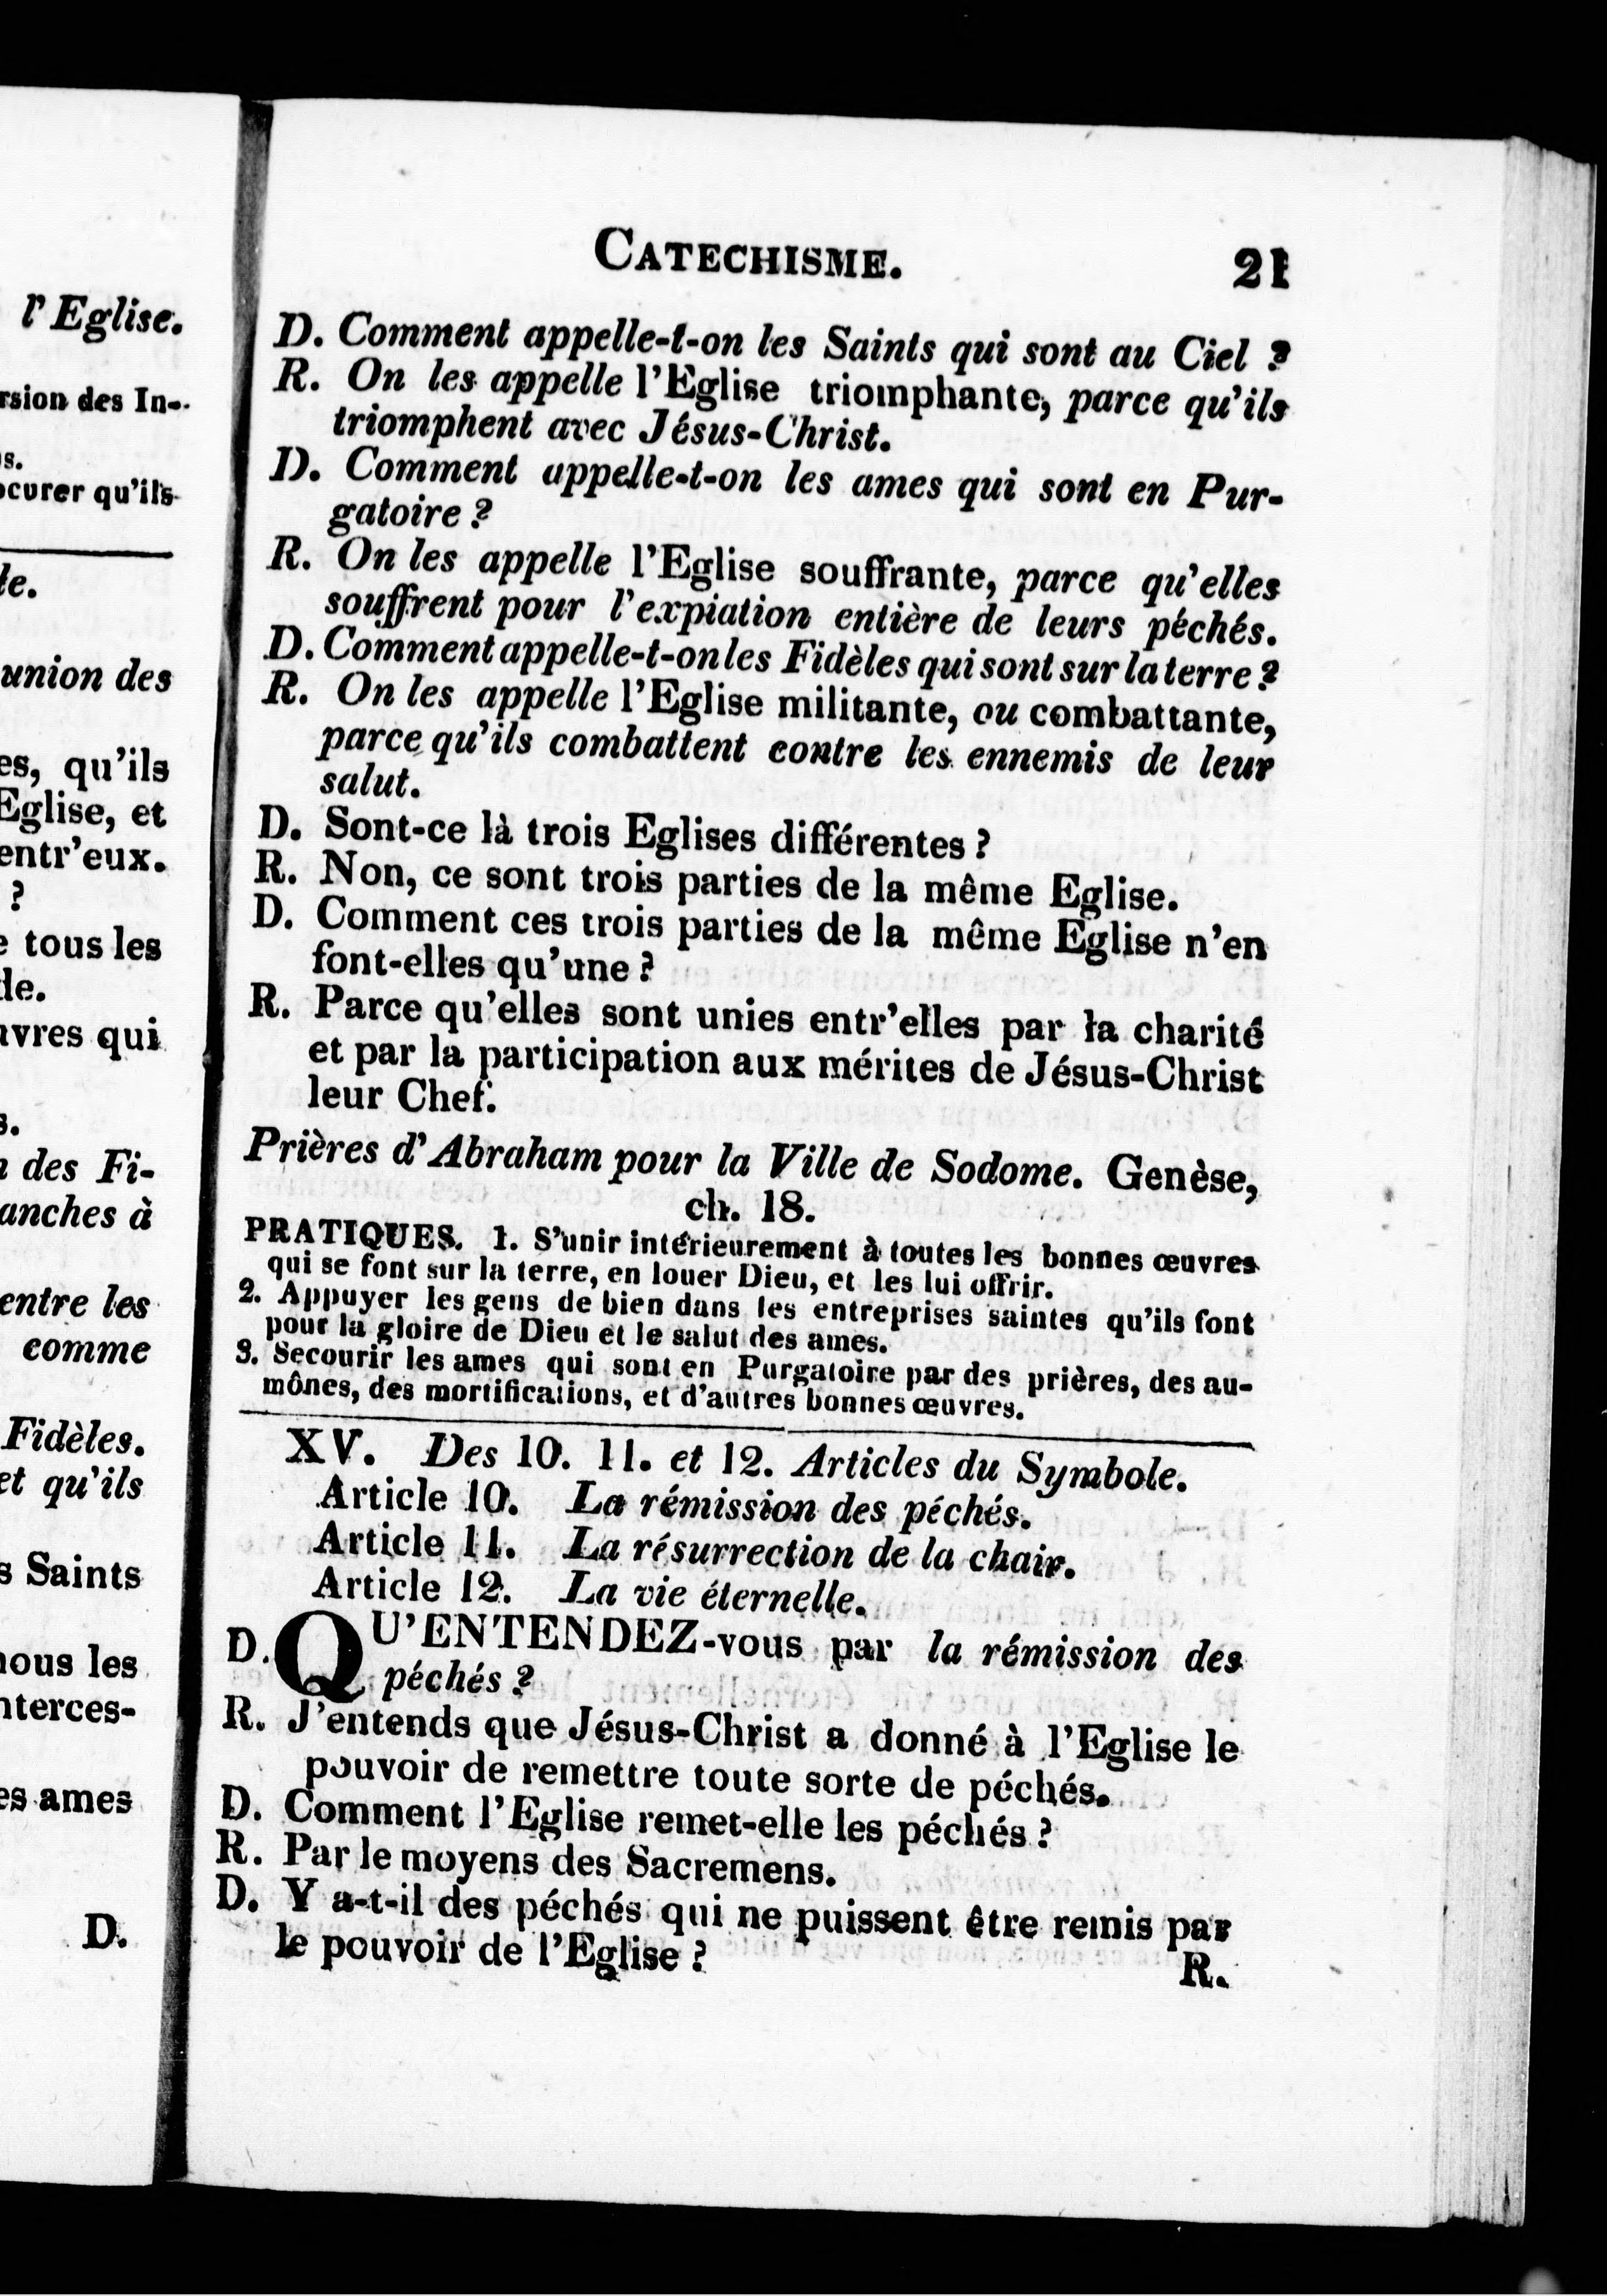 l'Eglise.
rsion des In-
s.
ocurer qu'ils
le.
union des
es, qu'ils
Eglise, et
entr'eux.
?
e tous les
de.
uvres qui
s.
n des Fi-
anches à
entre les
comme
Fidèles.
et qu'ils
s Saints
nous les
nterces-
es ames
D.
CATECHISME. 21
D. Comment appelle-t-on les Saints qui sont au Ciel ?
R. On les appelle l'Eglise triomphante, parce qu'ils
triomphent avec Jésus-Christ.
D. Comment appelle-t-on les ames qui sont en Pur-
gatoire ?
R. On les appelle l'Eglise souffrante, parce qu'elles
souffrent pour l'expiation entière de leurs péchés.
D. Comment appelle-t-on les Fidèles qui sont sur la terre ?
R. On les appelle l'Eglise militante, ou combattante,
parce qu'ils combattent contre les ennemis de leur
salut.
D. Sont-ce là trois Eglises différentes ?
R. Non, ce sont trois parties de la même Eglise.
D. Comment ces trois parties de la même Eglise n'en
font-elles qu'une ?
R. Parce qu'elles sont unies entr'elles par la charité
et par la participation aux mérites de Jésus-Christ
leur Chef.
Prières d'Abraham pour la Ville de Sodome. Genèse,
ch. 18.
PRATIQUES. 1. S'unir intérieurement à toutes les bonnes œuvres
qui se font sur la terre, en louer Dieu, et les lui offrir.
2. Appuyer les gens de bien dans les entreprises saintes qu'ils font
pour la gloire de Dieu et le salut des ames.
3. Secourir les ames qui sont en Purgatoire par des prières, des au-
mônes, des mortifications, et d'autres bonnes œuvres.
XV. Des 10. 11. et 12. Articles du Symbole.
Article 10. La rémission des péchés.
Article 11. La résurrection de la chair.
Article 12. La vie éternelle.
D. QU'ENTENDEZ-vous par la rémission des
péchés ?
R. J'entends que Jésus-Christ a donné à l'Eglise le
pouvoir de remettre toute sorte de péchés.
D. Comment l'Eglise remet-elle les péchés ?
R. Par le moyens des Sacremens.
D. Y a-t-il des péchés qui ne puissent être remis par
le pouvoir de l'Eglise ?
R.